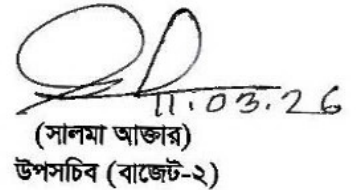 11.03.26
(সালমা আক্তার)
উপসচিব (বাজেট-২)